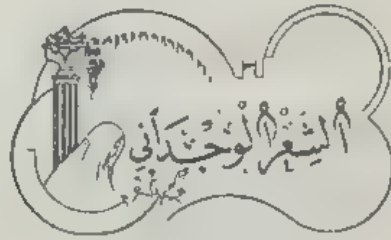 ألشِّعْرُ ألْوِجْدَانِي